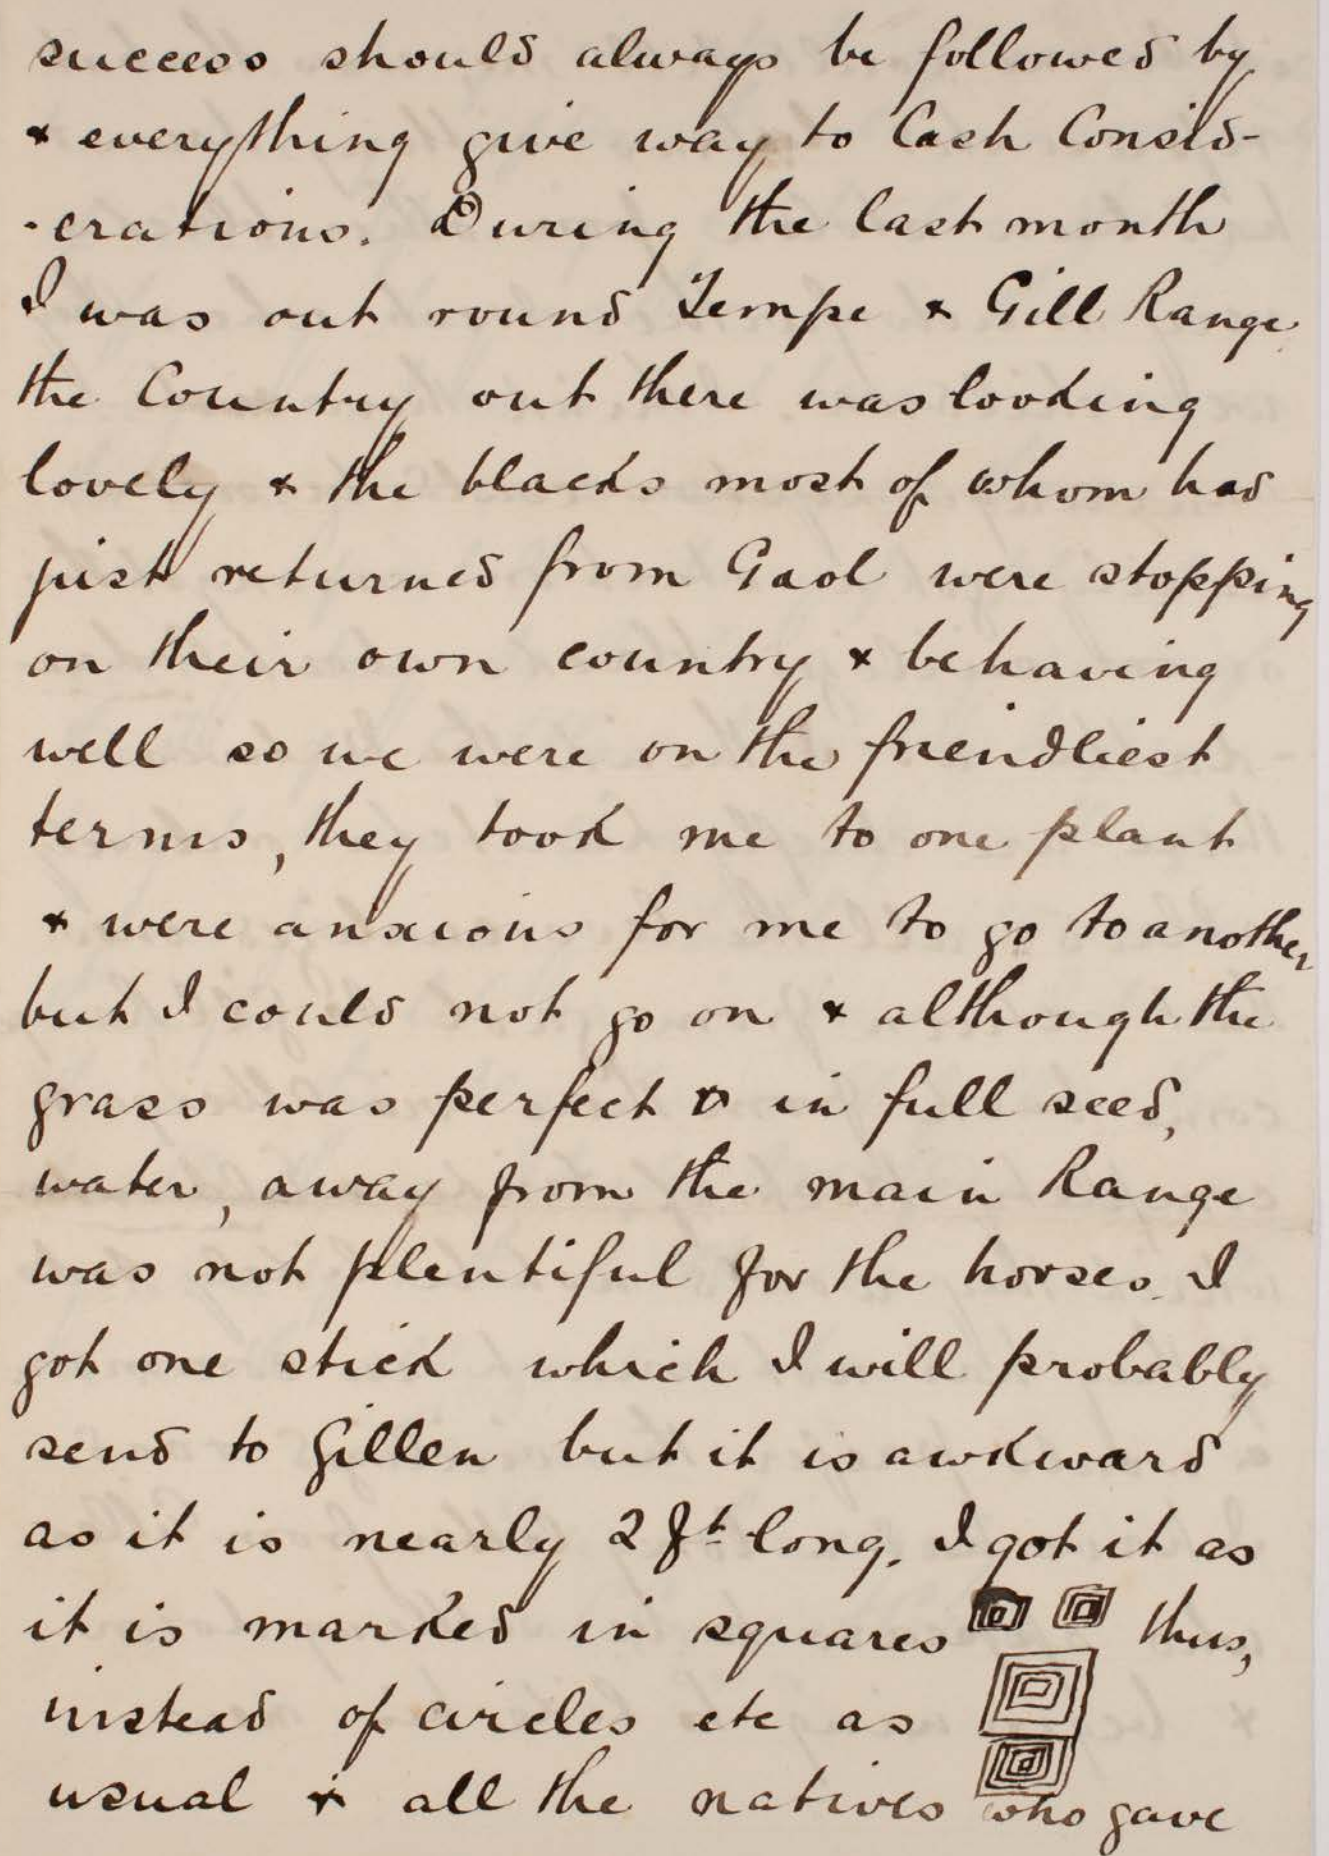 success should always be followed by
& everything give way to Cash Consid-
-erations. During the last month
I was out round Tempe & Gill Range
the Country out there was looking
lovely & the blacks most of whom had
just returned from Gaol were stopping
on their own country & behaving
well so we were on the friendliest
terms, they took me to one plant
& were anxious for me to go to another
but I could not go on & although the
grass was perfect & in full seed,
water, away from the main Range
was not plentiful for the horses. I
got one stick which I will probably
send to Gillen but it is awkward
as it is nearly 2 ft long. I got it as
it is marked in squares thus,
instead of circles etc as
usual & all the natives who gave